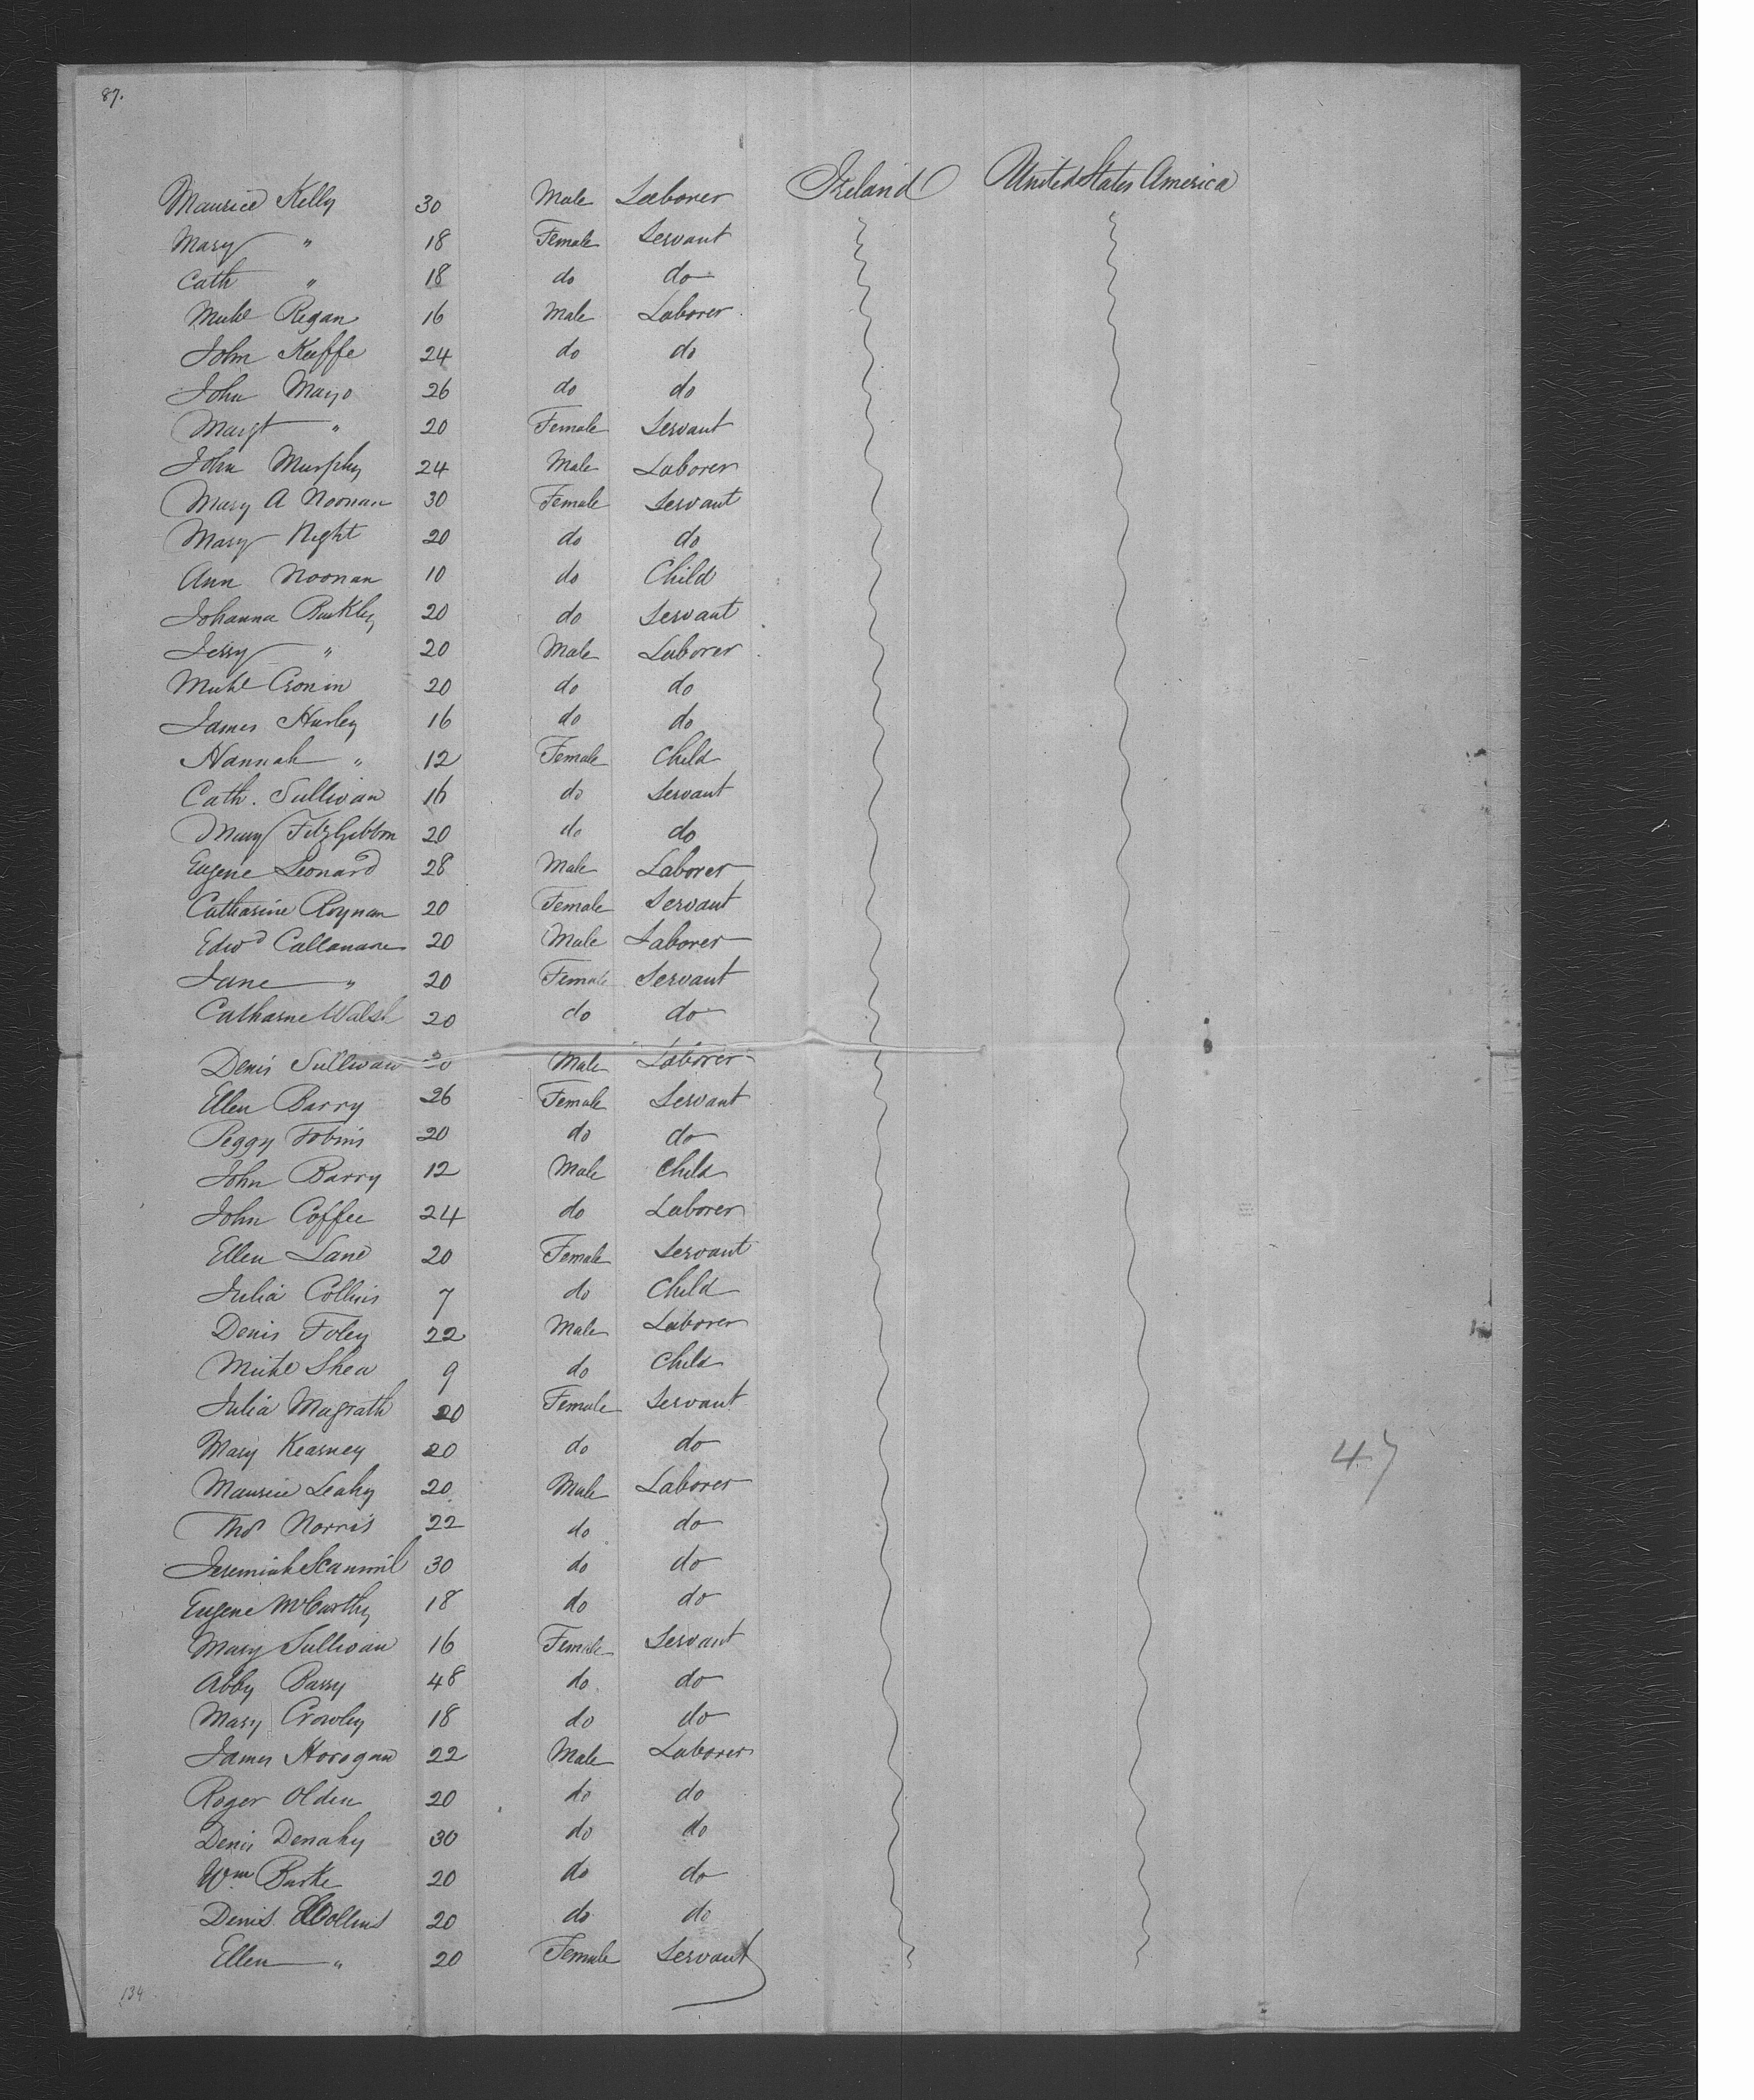 87.
Maurice Kelly 30 Male Laborer Ireland United States America
Mary " 18 Female Servant
Cath " 18 do do
Michl Regan 16 Male Laborer
John Keeffe 24 do do
John Mayo 26 do do
Margt " 20 Female Servant
John Murphy 24 Male Laborer
Mary A Noonan 30 Female Servant
Mary Night 20 do do
Ann Noonan 10 do Child
Johanna Buckley 20 do Servant
Jerry " 20 Male Laborer
Michl Cronin 20 do do
James Hurley 16 do do
Hannah " 12 Female Child
Cath. Sullivan 16 do Servant
Mary FitzGibbon 20 do do
Eugene Leonard 28 Male Laborer
Catharine Roynan 20 Female Servant
Edwd Callanane 20 Male Laborer
Jane " 20 Female Servant
Catharne Walsh 20 do do
Denis Sullivan Male Laborer
Ellen Barry 26 Female Servant
Peggy Tobins 20 do do
John Barry 12 Male Child
John Coffee 24 do Laborer
Ellen Lane 20 Female Servant
Julia Collins 7 do Child
Denis Foley 22 Male Laborer
Michl Shea 9 do Child
Julia Magrath 20 Female Servant
Mary Kearney 20 do do
47
Maurice Leahy 20 Male Laborer
Thos Norris 22 do do
Jeremiah Scannil 30 do do
Eugene McCarthy 18 do do
Mary Sullivan 16 Female Servant
Abby Barry 48 do do
Mary Crowley 18 do do
James Horogan 22 Male Laborer
Roger Olden 20 do do
Denis Denahy 30 do do
Wm Burke 20 do do
Denis Collins 20 do do
Ellen " 20 Female Servant
134